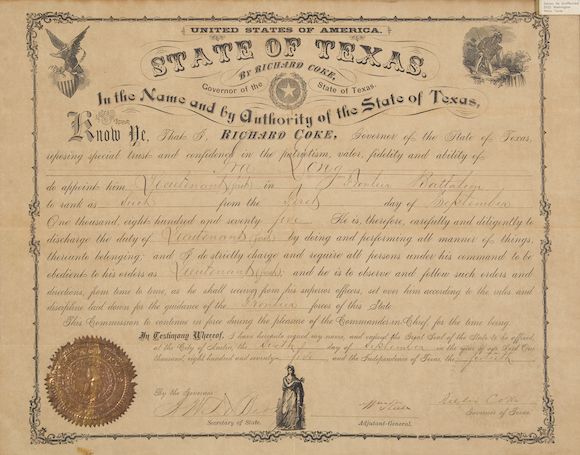 UNITED STATES OF AMERICA.
STATE OF TEXAS.
BY RICHARD COKE,
Governor of the State of Texas.
In the Name and by Authority of the State of Texas,
Know Ye, That I, RICHARD COKE, Governor of the State of Texas,
reposing special trust and confidence in the patriotism, valor, fidelity and ability of
Ira Long
do appoint him Lieutenant in Frontier Battalion
to rank as such from the first day of September
One thousand, eight hundred and seventy five He is, therefore, carefully and diligently to
discharge the duty of Lieutenant by doing and performing all manner of things,
thereunto belonging; and I do strictly charge and require all persons under his command to be
obedient to his orders as Lieutenant and he is to observe and follow such orders and
directions, from time to time, as he shall receive from his superior officers, set over him according to the rules and
discipline laid down for the guidance of the Frontier forces of this State.
This Commission to continue in force during the pleasure of the Commander-in-Chief, for the time being.
In Testimony Whereof, I have hereunto signed my name, and caused the Great Seal of the State to be affixed,
at the City of Austin, the day of September in the year of our Lord One
thousand, eight hundred and seventy five and the Independence of Texas, the fortieth
By the Governor:
Richd Coke
Secretary of State.
Adjutant-General.
Governor of Texas.